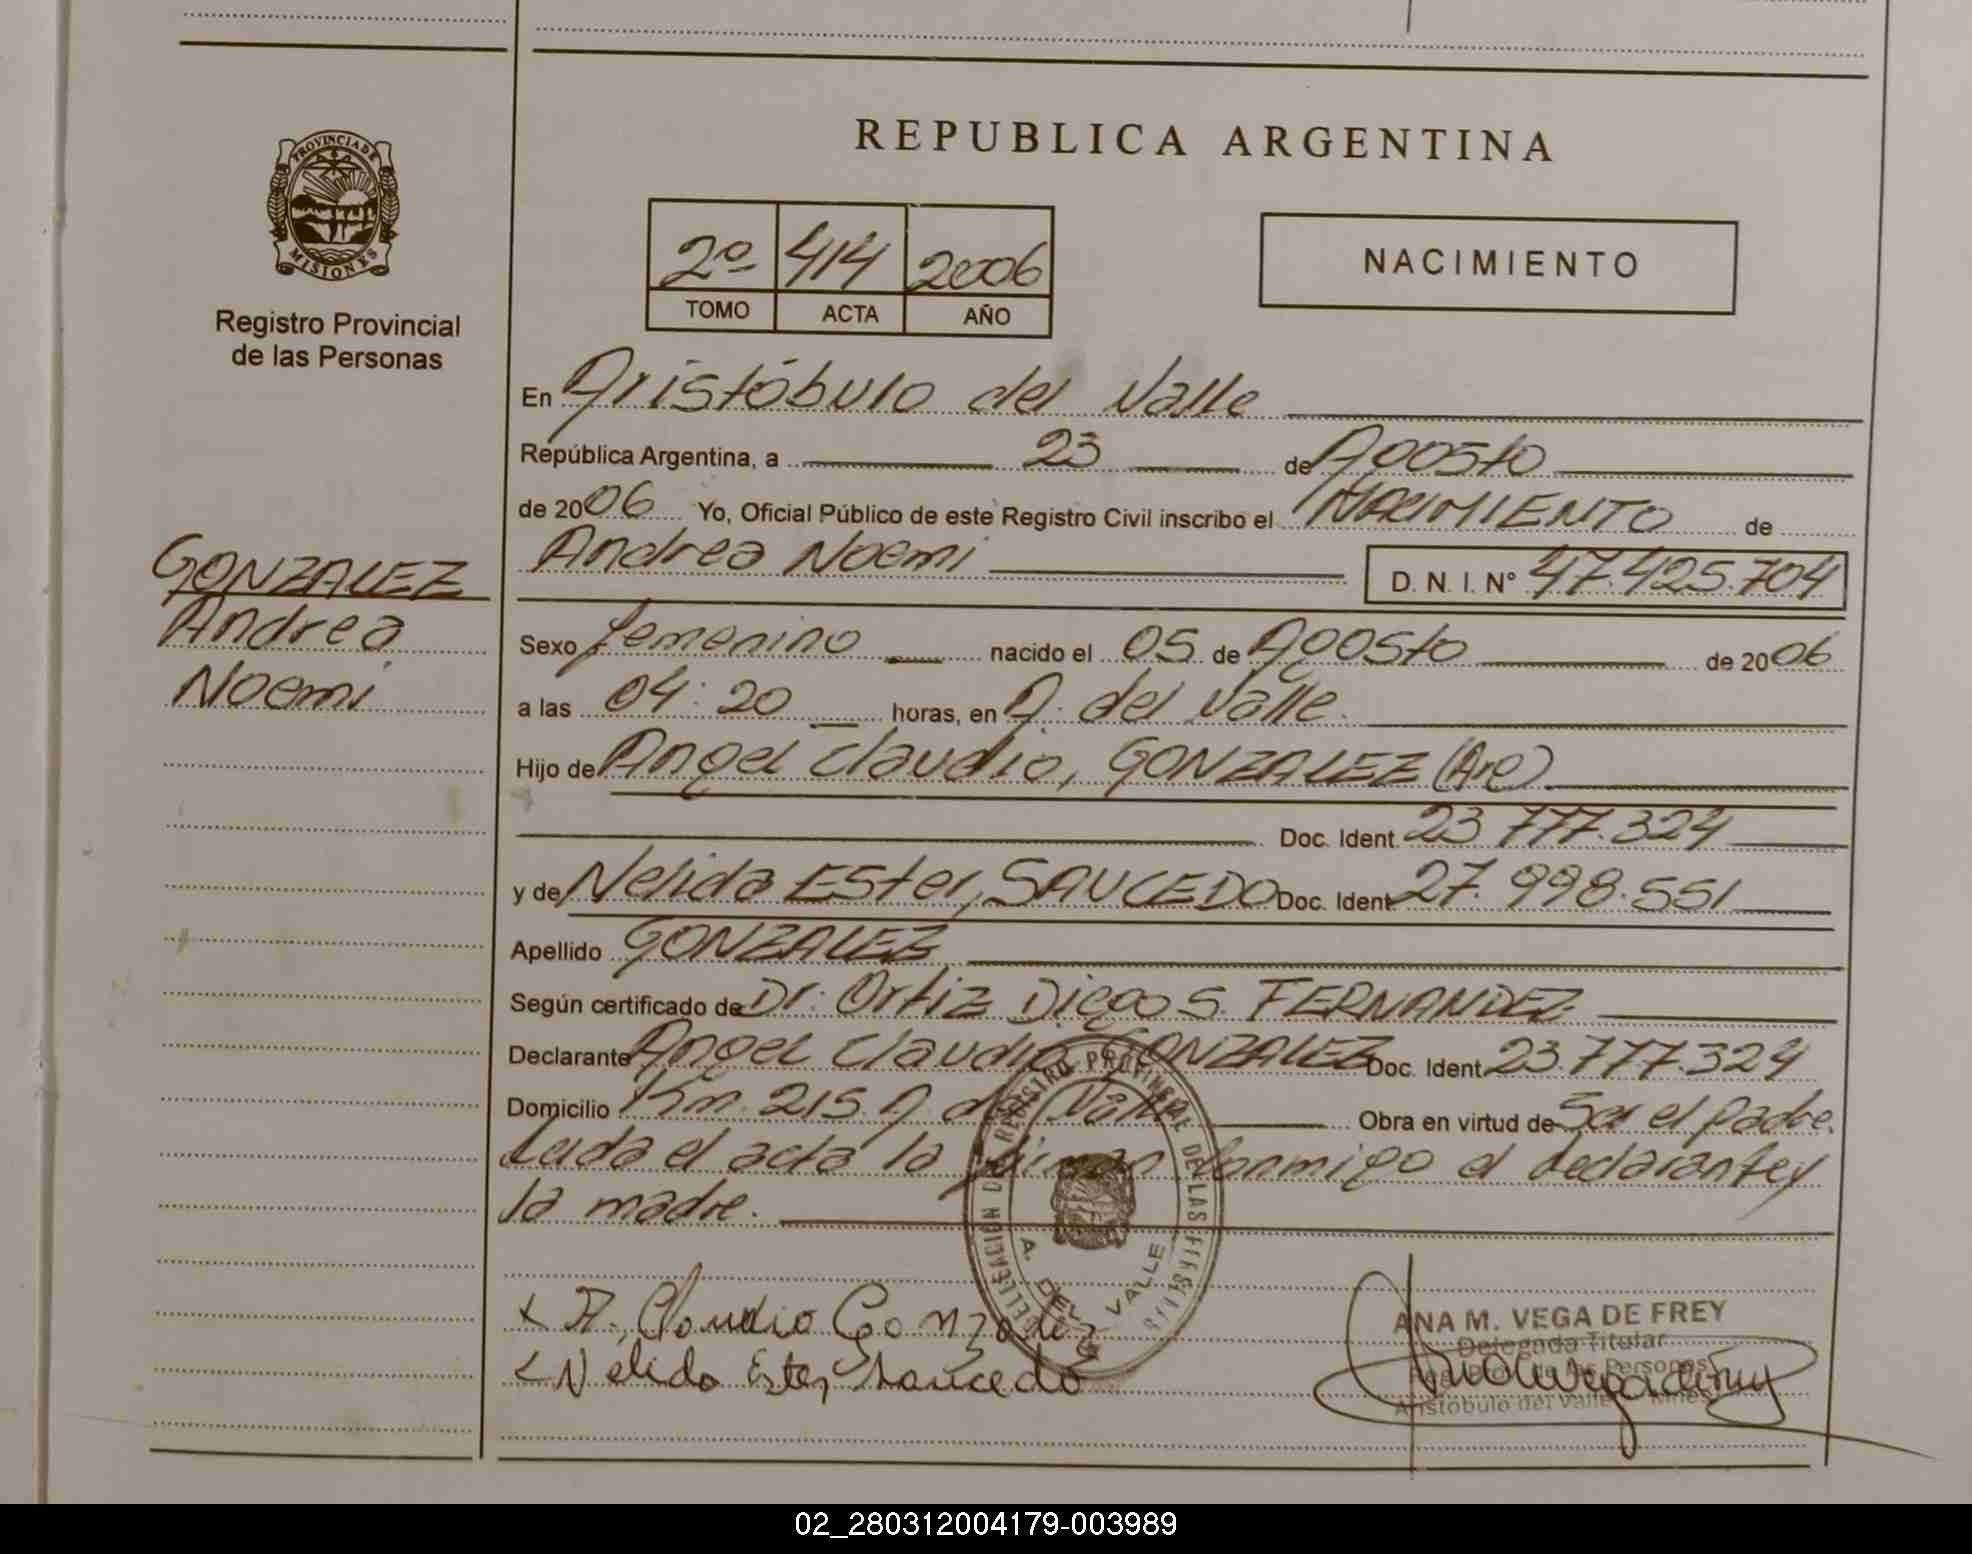 PROVINCIA DE
MISIONES
Registro Provincial
de las Personas
GONZALEZ
Andrea
Noemi
REPUBLICA ARGENTINA
2º 414 2006
TOMO ACTA AÑO
NACIMIENTO
En Aristóbulo del Valle
República Argentina, a 23 de Agosto
de 2006 Yo, Oficial Público de este Registro Civil inscribo el NACIMIENTO de
Andrea Noemi D. N. I. N° 47.425.704
Sexo femenino nacido el 05 de Agosto de 2006
a las 04:20 horas, en A. del Valle.
Hijo de Angel Claudio, GONZALEZ (Arg)
Doc. Ident. 23.777.324
y de Nelida Ester, SAUCEDO Doc. Ident. 27.998.551
Apellido GONZALEZ
Según certificado de Dr. Ortiz Diego S. FERNANDEZ
Declarante Angel Claudio GONZALEZ Doc. Ident. 23.777.324
Domicilio Km. 215 A. del Valle Obra en virtud de Ser el padre.
Leida el acta la firman conmigo el declarante y
la madre.
DELEGACIÓN DE REGISTRO PROVINCIAL DE LAS
A. DEL VALLE
A. Claudio Gonzalez
Nelida Ester Saucedo
ANA M. VEGA DE FREY
Delegada Titular
de las Personas
Aristóbulo del Valle - Mnes.
02_280312004179-003989